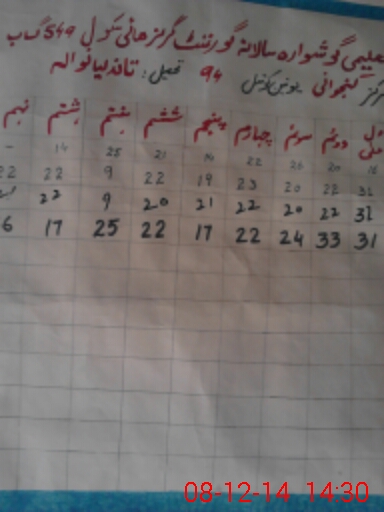 تعلیمی گوشوارہ سالانہ گورنمنٹ گرلز ھائی سکول 549 گ ب
مرکز کنجوانی یونین کونسل 94 تحصیل: تاندلیانوالہ
دوئم سوئم چہارم پنجم ششم ہفتم ہشتم نہم
16 20 26 22 10 21 25 14 -
31 22 20 23 19 22 9 22 22
31 22 20 22 21 20 9 22
31 33 24 22 17 22 25 17 6
08-12-14 14:30